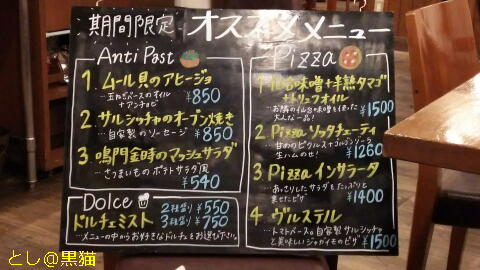 期間限定 オススメメニュー
Anti Past
1. ムール貝のアヒージョ
…玉ねぎベースのオイル
+アンチョビ ¥850
2. サルシッチャのオーブン焼き
…自家製のソーセージ ¥850
3. 鳴門金時のマッシュサラダ
…さつまいもの ポテトサラダ風
¥540
Dolce
ドルチェミスト 2種盛り ¥550
3種盛り ¥750
…メニューの中からお好きなドルチェをお選び下さい。
Pizza
1 仙台味噌+半熟タマゴ
+トリュフオイル
…お隣の仙台味噌を使った
大人な一品! ¥1500
2 Pizza ゾッタチェーティ
…甘めのピクルス+ゴルゴンゾーラ
生ハムのせ! ¥1260
3 Pizza インサラータ
…あっさりしたサラダをたっぷりと
乗せたピザ ¥1400
4 ヴルステル
…トマトベース。自家製サルシッチャ
と美味しいジャガイモのピザ ¥1500
とし@黒猫